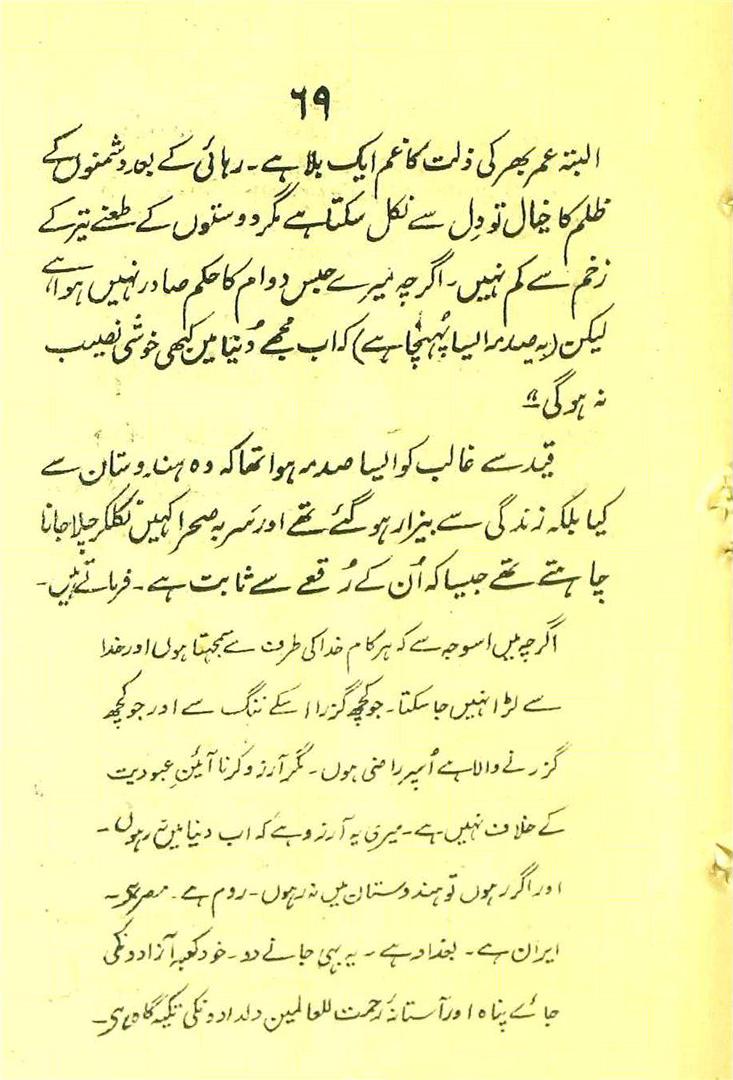 ۶۹
البتہ عمر بھر کی ذلت کا غم ایک بلا ہے۔ رہائی کے بعد دشمنوں کے
ظلم کا خیال تو دِل سے نکل سکتا ہے مگر دوستوں کے طعنے تیر کے
زخم سے کم نہیں۔ اگرچہ میرے حبس دوام کا حکم صادر نہیں ہوا ہے
لیکن (یہ صدمہ ایسا پُہنچا ہے) کہ اب مجھے دُنیا میں کبھی خوشی نصیب
نہ ہوگی"
قید سے غالب کو ایسا صدمہ ہوا تھا کہ وہ ہندوستان سے
کیا بلکہ زندگی سے بیزار ہو گئے تھے اور سَر بہ صحرا کہیں نکلکر چلا جانا
چاہتے تھے جیسا کہ اُن کے رُقعے سے ثابت ہے۔ فرماتے ہیں۔
اگرچہ میں اسوجہ سے کہ ہر کام خدا کی طرف سے سمجہتا ہوں اور خدا
سے لڑا نہیں جا سکتا۔ جو کچھ گزرا اسکے ننگ سے اور جو کچھ
گزرنے والا ہے اُسپر راضی ہوں۔ مگر آرزو کرنا آئینِ عبودیت
کے خلاف نہیں ہے۔ میری یہ آرزو ہے کہ اب دنیا میں نہ رہوں۔
اور اگر رہوں تو ہندوستان میں نہ رہوں۔ روم ہے۔ مصر ہی۔
ایران ہے۔ بغداد ہے۔ یہ بہی جانے دو۔ خود کعبہ آزادونکی
جائے پناہ اور آستانۂ رحمت للعالمین دلدادونکی تکیہ گاہ ہی۔